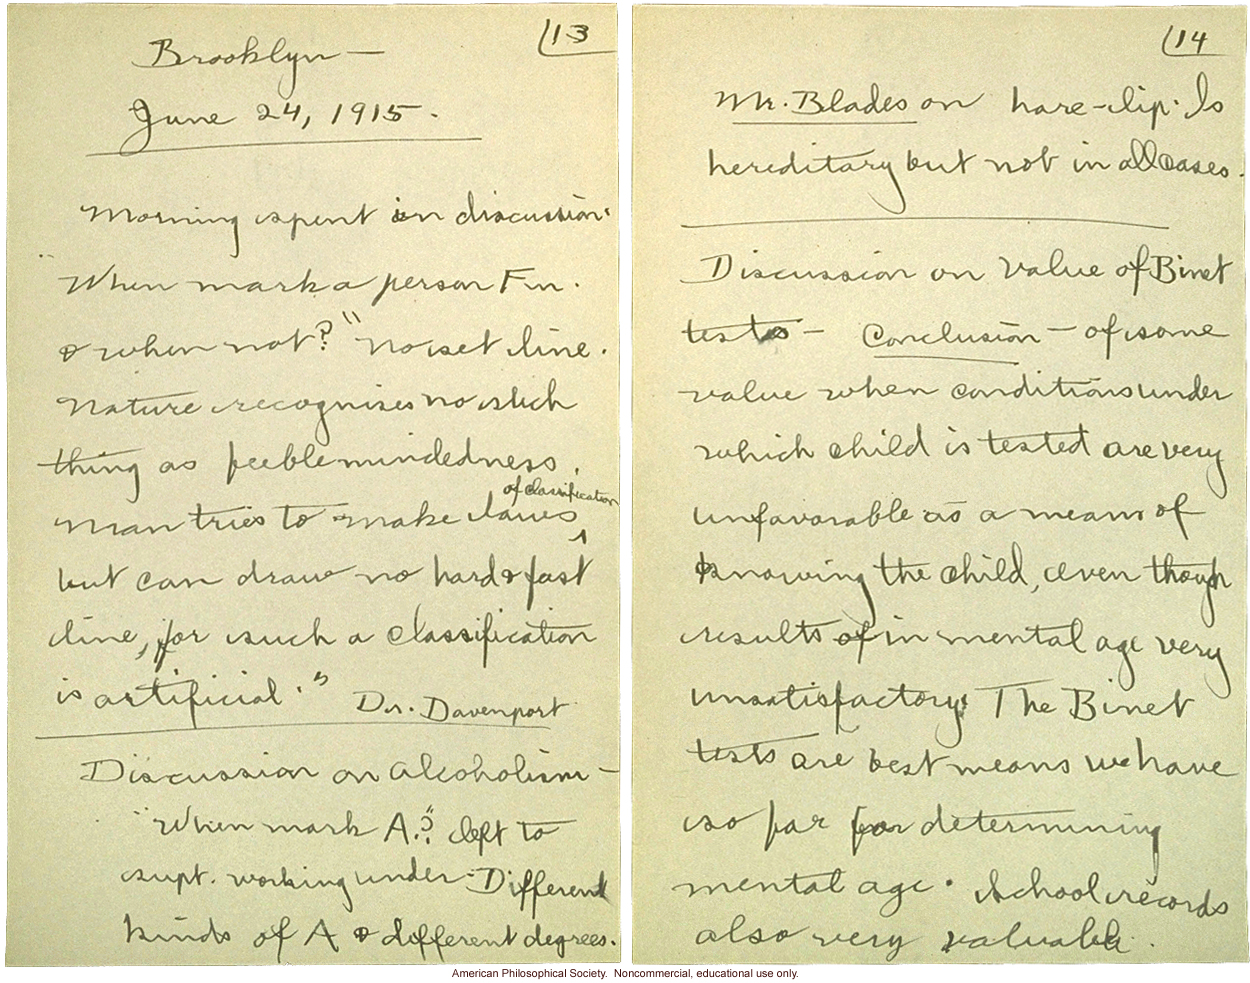 13
Brooklyn —
June 24, 1915.
Morning spent in discussion.
"When mark a person Fm.
& when not?" No set line.
Nature recognises no such
thing as feeblemindedness.
of classification
Man tries to make laws ^
but can draw no hard & fast
line, for such a classification
is artificial." Dr. Davenport
Discussion on Alcoholism —
"When mark A.?" left to
supt. working under - Different
kinds of A & different degrees.
14
Mr. Blades on hare-lip. Is
hereditary but not in all cases.
Discussion on Value of Binet
tests — Conclusion — of some
value when conditions under
which child is tested are very
unfavorable as a means of
knowing the child, even though
results of in mental age very
unsatisfactory. The Binet
tests are best means we have
so far for determining
mental age. School records
also very valuable.
American Philosophical Society. Noncommercial, educational use only.